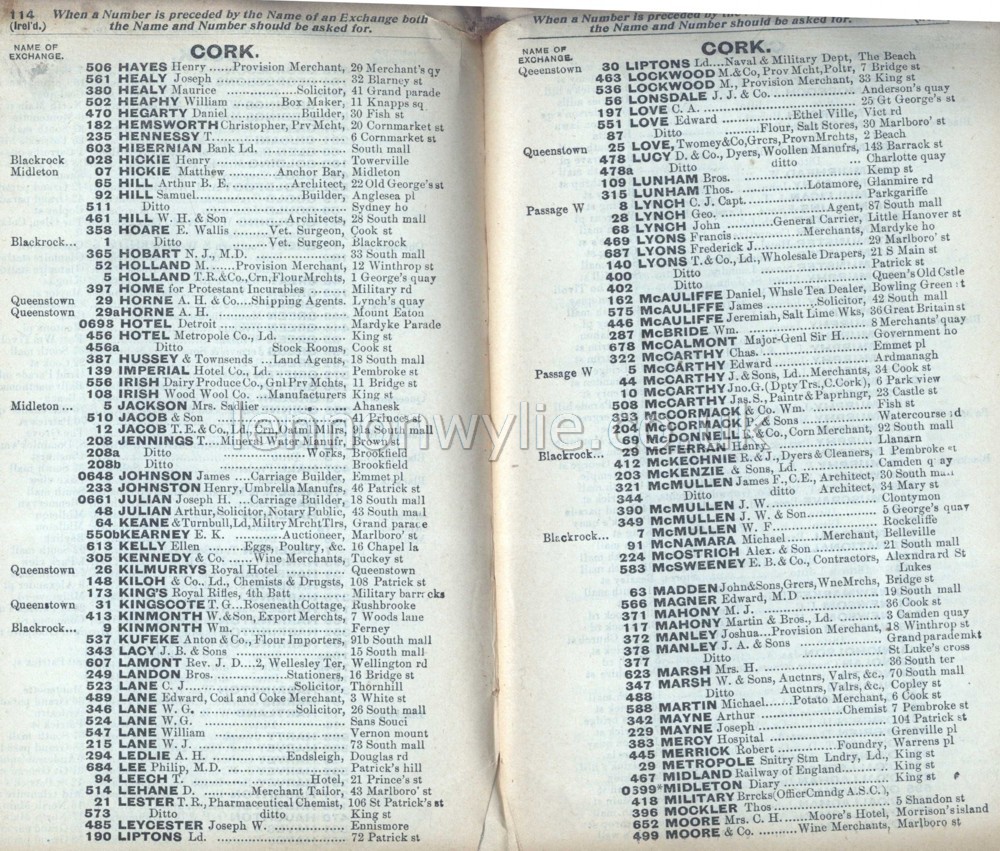 114
(Irel'd.)
When a Number is preceded by the Name of an Exchange both
the Name and Number should be asked for.
NAME OF
EXCHANGE.
CORK.
506 HAYES Henry ......Provision Merchant, 20 Merchant's qy
561 HEALY Joseph .................... 32 Blarney st
380 HEALY Maurice ..............Solicitor, 41 Grand parade
502 HEAPHY William ............Box Maker, 11 Knapps sq
470 HEGARTY Daniel ..................Builder, 30 Fish st
182 HEMSWORTH Christopher, Prv Mcht, 20 Cornmarket st
235 HENNESSY T. .................... 6 Cornmarket st
603 HIBERNIAN Bank Ld. .................... South mall
Blackrock 028 HICKIE Henry .................... Towerville
Midleton 07 HICKIE Matthew ............Anchor Bar, Midleton
65 HILL Arthur B. E. ...............Architect, 22 Old George's st
92 HILL Samuel....................Builder, Anglesea pl
511 Ditto .................... Sydney ho
461 HILL W. H. & Son ............Architects, 28 South mall
358 HOARE E. Wallis .........Vet. Surgeon, Cook st
Blackrock... 1 Ditto .........Vet. Surgeon, Blackrock
365 HOBART N. J., M.D. .................... 33 South mall
52 HOLLAND M. ......Provision Merchant, 12 Winthrop st
5 HOLLAND T.R.&Co.,Crn,FlourMrchts, 1 George's quay
397 HOME for Protestant Incurables ......... Military rd
Queenstown 29 HORNE A. H. & Co....Shipping Agents. Lynch's quay
Queenstown 29a HORNE A. H. .................... Mount Eaton
0698 HOTEL Detroit .................... Mardyke Parade
456 HOTEL Metropole Co., Ld. ............ King st
456a Ditto Stock Rooms, Cook st
387 HUSSEY & Townsends ...Land Agents, 18 South mall
139 IMPERIAL Hotel Co., Ld. ............ Pembroke st
556 IRISH Dairy Produce Co., Gnl Prv Mchts, 11 Bridge st
108 IRISH Wood Wool Co. ...Manufacturers King st
Midleton ... 5 JACKSON Mrs. Sadlier............ Ahanesk
510 JACOB & Son .................... 41 Princes st
12 JACOB T.E.&Co., Ld., Crn,Oatml Mrchts, 91 South mall
208 JENNINGS T....Mineral Water Manufr, Brown st
208a Ditto ..................Works, Brookfield
208b Ditto .................... Brookfield
0648 JOHNSON James ....Carriage Builder, Emmet pl
233 JOHNSTON Henry, Umbrella Manufrs, 46 Patrick st
0661 JULIAN Joseph H. ...Carriage Builder, 18 South mall
48 JULIAN Arthur, Solicitor, Notary Public, 43 South mall
64 KEANE & Turnbull, Ld, Miltry MrchtTlrs, Grand parade
550b KEARNEY E. K. ............Auctioneer, Marlboro' st
613 KELLY Ellen .........Eggs, Poultry, &c. 16 Chapel la
305 KENNEDY & Co. ......Wine Merchants, Tuckey st
Queenstown 26 KILMURRYS Royal Hotel ............ Queenstown
148 KILOH & Co.. Ld., Chemists & Drugsts, 108 Patrick st
173 KING'S Royal Rifles, 4th Batt ............ Military barrcks
Queenstown 31 KINGSCOTE T. G...Roseneath Cottage, Rushbrooke
413 KINMONTH W. & Son, Export Merchts, 7 Woods lane
Blackrock... 9 KINMONTH Wm. .................... Ferney
537 KUFEKE Anton & Co., Flour Importers, 91b South mall
343 LACY J. B. & Sons .................... 15 South mall
607 LAMONT Rev. J. D....2, Wellesley Ter, Wellington rd
249 LANDON Bros. ...............Stationers, 16 Bridge st
523 LANE C. J. ..................Solicitor, Thornhill
489 LANE Edward, Coal and Coke Merchant, 3 White st
346 LANE W. G. ..................Solicitor, 26 South mall
524 LANE W.G. .................... Sans Souci
547 LANE William .................... Vernon mount
215 LANE W. J. .................... 73 South mall
294 LEDLIE A. H. ...............Endsleigh, Douglas rd
684 LEE Philip, M.D. .................... Patrick's hill
94 LEECH T. ....................Hotel, 21 Prince's st
514 LEHANE D. ............Merchant Tailor, 43 Marlboro' st
21 LESTER T. R., Pharmaceutical Chemist, 106 St Patrick's st
573 Ditto ditto. King st
485 LEYCESTER Joseph W. ............ Ennismore
190 LIPTONS Ld. .................... 72 Patrick st
When a Number is preceded by
the Name and Number should be asked for.
NAME OF
EXCHANGE.
CORK.
Queenstown 30 LIPTONS Ld....Naval & Military Dept, The Beach
463 LOCKWOOD M.&Co, Prov Mcht,Poltr, 7 Bridge st
536 LOCKWOOD M., Provision Merchant, 33 King st
56 LONSDALE J. J. & Co. ............ Anderson's quay
197 LOVE C. A. .................... 25 Gt George's st
551 LOVE Edward ............Ethel Ville, Vict rd
87 Ditto .........Flour, Salt Stores, 30 Marlboro' st
Queenstown 25 LOVE, Twomey&Co,Grcrs,ProvnMrchts, 2 Beach
478 LUCY D. & Co., Dyers, Woollen Manufrs, 143 Barrack st
478a Ditto ditto ... Charlotte quay
109 LUNHAM Bros. .................... Kemp st
315 LUNHAM Thos. ............Lotamore, Glanmire rd
Passage W 8 LYNCH C. J. Capt. .................... Parkgariffe
28 LYNCH Geo. ..................Agent, 87 South mall
68 LYNCH John .........General Carrier, Little Hanover st
469 LYONS Francis............Merchants, Mardyke ho
687 LYONS Frederick J. .................... 29 Marlboro' st
140 LYONS T. & Co., Ld., Wholesale Drapers, 21 S Main st
400 Ditto .................... Patrick st
402 Ditto .................... Queen's Old Cstle
162 McAULIFFE Daniel, Whsle Tea Dealer, Bowling Green st
575 McAULIFFE James ............Solicitor, 42 South mall
446 McAULIFFE Jeremiah, Salt Lime Wks, 36 Great Britain st
287 McBRIDE Wm. .................... 8 Merchants' quay
678 McCALMONT Major-Genl Sir H....... Government ho
322 McCARTHY Chas. .................... Emmet pl
Passage W 5 McCARTHY Edward .................... Ardmanagh
44 McCARTHY J. & Sons, Ld....Merchants, 34 Cook st
10 McCARTHY Jno.G. (Dpty Trs.,C.Cork), 6 Park view
508 McCARTHY Jas.S., Paintr & Paprhngr, 23 Castle st
393 McCORMACK & Co. Wm. ............ Fish st
204 McCORMACK P. & Sons ............ Watercourse rd
69 McCONNELL & Co., Corn Merchant, 92 South mall
Blackrock... 29 McFERRAN Henry .................... Llanarn
412 McKECHNIE R. & J., Dyers & Cleaners, 1 Pembroke st
203 McKENZIE & Sons, Ld. ............ Camden quay
321 McMULLEN James F., C.E., Architect, 30 South
344 Ditto ditto Architect, 34 Mary st
390 McMULLEN J. W. .................... Clontymon
349 McMULLEN J. W. & Son............ 5 George's quay
Blackrock... 7 McMULLEN W. F. .................... Rockcliffe
91 McNAMARA Michael............Merchant, Belleville
224 McOSTRICH Alex. & Son ............ 21 South mall
583 McSWEENEY E. B. & Co., Contractors, Alexndrard St
Lukes
63 MADDEN John&Sons,Grcrs,WneMrchs, Bridge st
566 MAGNER Edward, M.D ............ 19 South mall
371 MAHONY M. J. .................... 36 Cook st
117 MAHONY Martin & Bros., Ld. ......... 3 Camden quay
372 MANLEY Joshua...Provision Merchant, 18 Winthrop st
378 MANLEY J. A. & Sons ............ Grand parade mkt
377 Ditto .................... St Luke's cross
623 MARSH Mrs. H. .................... 36 South ter
347 MARSH W. & Sons, Auctnrs, Valrs, &c., 70 South mall
488 Ditto Auctnrs, Valrs, &c., Copley st
588 MARTIN Michael......Potato Merchant, 6 Cook st
342 MAYNE Arthur ..................Chemist 7 Pembroke st
229 MAYNE Joseph .................... 104 Patrick st
383 MERCY Hospital .................... Grenville pl
445 MERRICK Robert ............Foundry, Warrens pl
29 METROPOLE Snitry Stm Lndry, Ld., King st
467 MIDLAND Railway of England......... King st
0599*MIDLETON Diary .................... King st
418 MILITARY Brrcks (Officr Cmndg A.S.C.),
396 MOCKLER Thos .................... 5 Shandon st
652 MOORE Mrs. C. H. ......Moore's Hotel, Morrison's island
499 MOORE & Co. ............Wine Merchants, Marlboro st
lennonwylie.co.uk